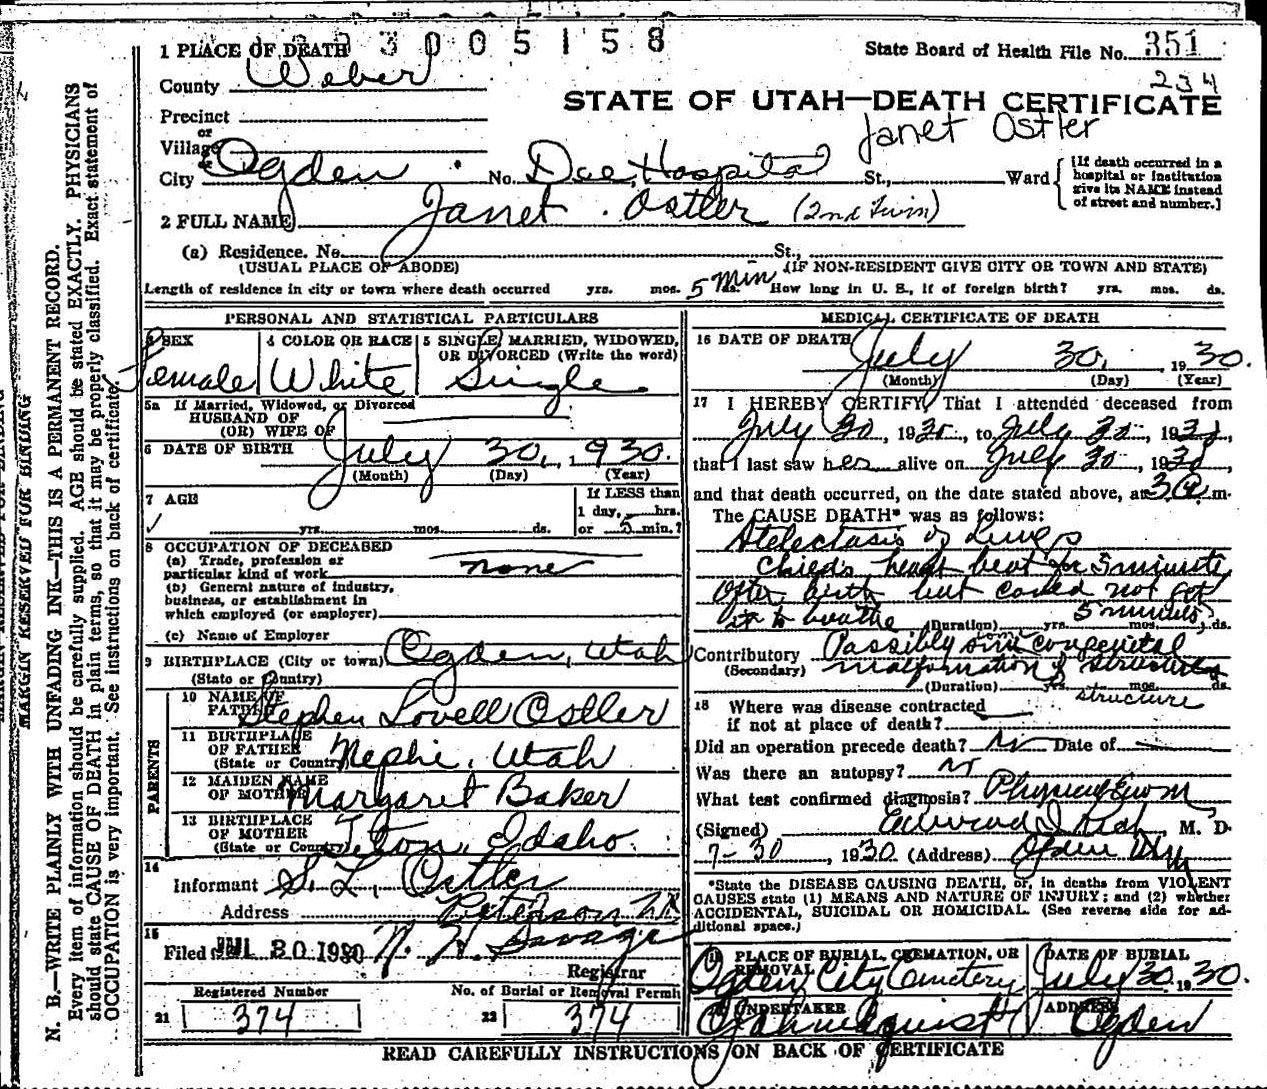 3 0 0 5 1 5 8
State Board of Health File No. 351
234
1 PLACE OF DEATH
County Weber
STATE OF UTAH—DEATH CERTIFICATE
Janet Ostler
Precinct
or
Village
or
City Ogden No. Dee Hospital St., Ward
[If death occurred in a
hospital or institution
give its NAME instead
of street and number.]
2 FULL NAME Janet Ostler (2nd Twin)
(a) Residence. No. St.,
(USUAL PLACE OF ABODE) (IF NON-RESIDENT GIVE CITY OR TOWN AND STATE)
Length of residence in city or town where death occurred yrs. mos. 5 Min ds. How long in U. S., if of foreign birth? yrs. mos. ds.
PERSONAL AND STATISTICAL PARTICULARS
3 SEX
Female
4 COLOR OR RACE
White
5 SINGLE, MARRIED, WIDOWED,
OR DIVORCED (Write the word)
Single
5a If Married, Widowed, or Divorced
HUSBAND OF
(OR) WIFE OF
6 DATE OF BIRTH July 30, 1930.
(Month) (Day) (Year)
7 AGE
yrs. mos. ds.
If LESS than
1 day, hrs.
or 5 min.?
8 OCCUPATION OF DECEASED
(a) Trade, profession or
particular kind of work none
(b) General nature of industry,
business, or establishment in
which employed (or employer)
(c) Name of Employer
9 BIRTHPLACE (City or town) Ogden, Utah
(State or Country)
PARENTS
10 NAME OF
FATHER Stephen Lovell Ostler
11 BIRTHPLACE
OF FATHER Nephi, Utah
(State or Country)
12 MAIDEN NAME
OF MOTHER Margaret Baker
13 BIRTHPLACE
OF MOTHER Teton, Idaho.
(State or Country)
14
Informant S. L. Ostler
Address Peterson Ut
15
Filed JUL 30 1930 N. H. Savage
Registrar
Registered Number
21 374
No. of Burial or Removal Permit
22 374
MEDICAL CERTIFICATE OF DEATH
16 DATE OF DEATH July 30, 1930.
(Month) (Day) (Year)
17 I HEREBY CERTIFY, That I attended deceased from
July 30, 1930, to July 30, 1930,
that I last saw her alive on July 30, 1930
and that death occurred, on the date stated above, at 3 a m.
The CAUSE DEATH* was as follows:
Atelectasis of Lungs
Childs heart beat for 5 minute
after birth but could not get
it to breathe (Duration) yrs. 5 minutes mos. ds.
Contributory Possibly some congenital
(Secondary) malformation of structures
(Duration) yrs. mos. ds.
structure
18 Where was disease contracted
if not at place of death?
Did an operation precede death? No Date of
Was there an autopsy? No
What test confirmed diagnosis? Physical Exam
(Signed) M. D.
7-30, 1930 (Address) Ogden Utah
*State the DISEASE CAUSING DEATH, or, in deaths from VIOLENT
CAUSES state (1) MEANS AND NATURE OF INJURY; and (2) whether
ACCIDENTAL, SUICIDAL OR HOMICIDAL. (See reverse side for ad-
ditional space.)
PLACE OF BURIAL, CREMATION, OR
REMOVAL
Ogden City Cemetery
DATE OF BURIAL
July 30, 1930.
UNDERTAKER
ADDRESS
Ogden
READ CAREFULLY INSTRUCTIONS ON BACK OF CERTIFICATE
MARGIN RESERVED FOR BINDING
N. B.—WRITE PLAINLY WITH UNFADING INK—THIS IS A PERMANENT RECORD.
Every item of information should be carefully supplied. AGE should be stated EXACTLY. PHYSICIANS
should state CAUSE OF DEATH in plain terms, so that it may be properly classified. Exact statement of
OCCUPATION is very important. See instructions on back of certificate.